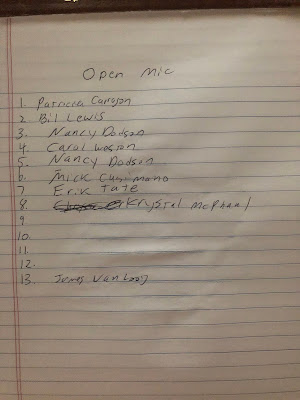 Open Mic
1. Patricia Carragon
2 Bil Lewis
3. Nancy Dodson
4 Carol Wason
5- Nancy Dodson
6. Mick Cusimano
7 Erik Tate
8 Krystal McPhaul
9
10.
11.
12.
13. James Van Looy